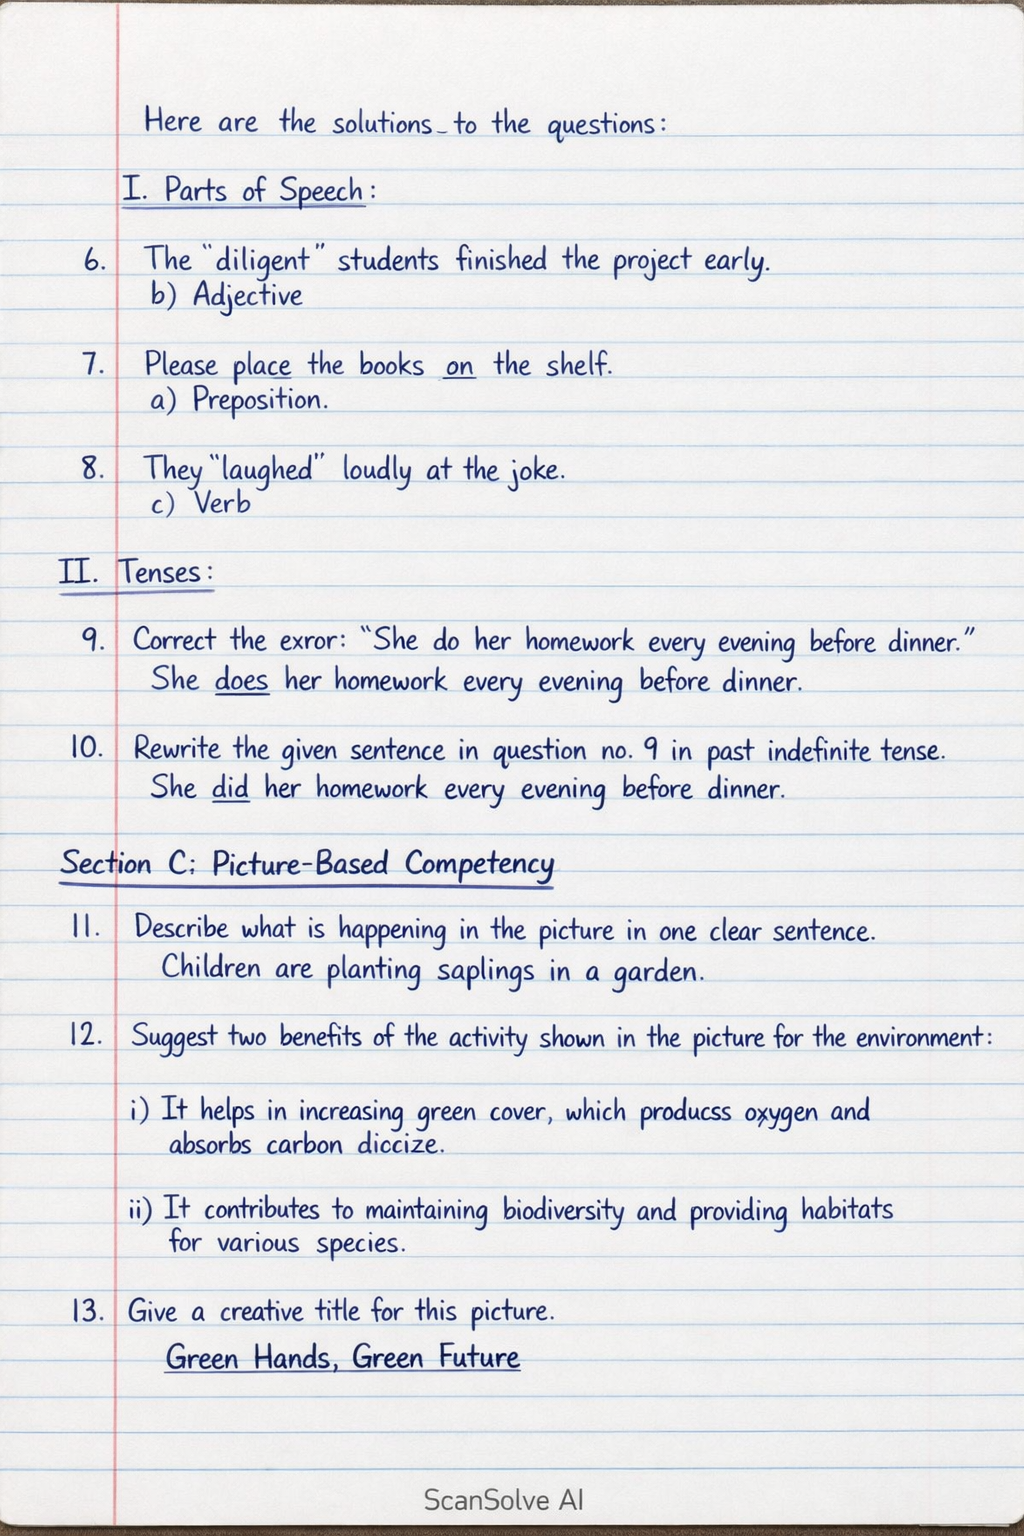 Here are the solutions to the questions:
I. Parts of Speech:
6. The "diligent" students finished the project early.
b) Adjective
7. Please place the books on the shelf.
a) Preposition.
8. They "laughed" loudly at the joke.
c) Verb
II. Tenses:
9. Correct the exror: "She do her homework every evening before dinner."
She does her homework every evening before dinner.
10. Rewrite the given sentence in question no. 9 in past indefinite tense.
She did her homework every evening before dinner.
Section C: Picture-Based Competency
11. Describe what is happening in the picture in one clear sentence.
Children are planting saplings in a garden.
12. Suggest two benefits of the activity shown in the picture for the environment:
i) It helps in increasing green cover, which producss oxygen and
absorbs carbon diccize.
ii) It contributes to maintaining biodiversity and providing habitats
for various species.
13. Give a creative title for this picture.
Green Hands, Green Future
ScanSolve AI